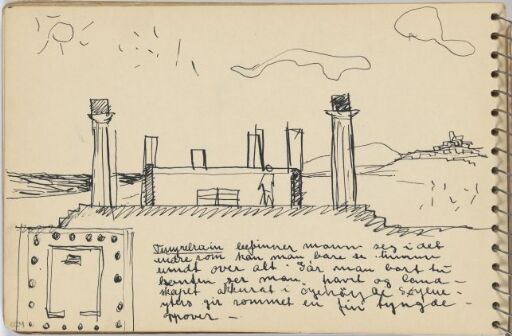 befinner mann seg i det
indre som kan man bare se himmel
rundt over alt - Går man bort til
kanten ser man havet og land-
skapet akkurat i øyenhøyde
gir rommet en fin tyngde -
oppover -